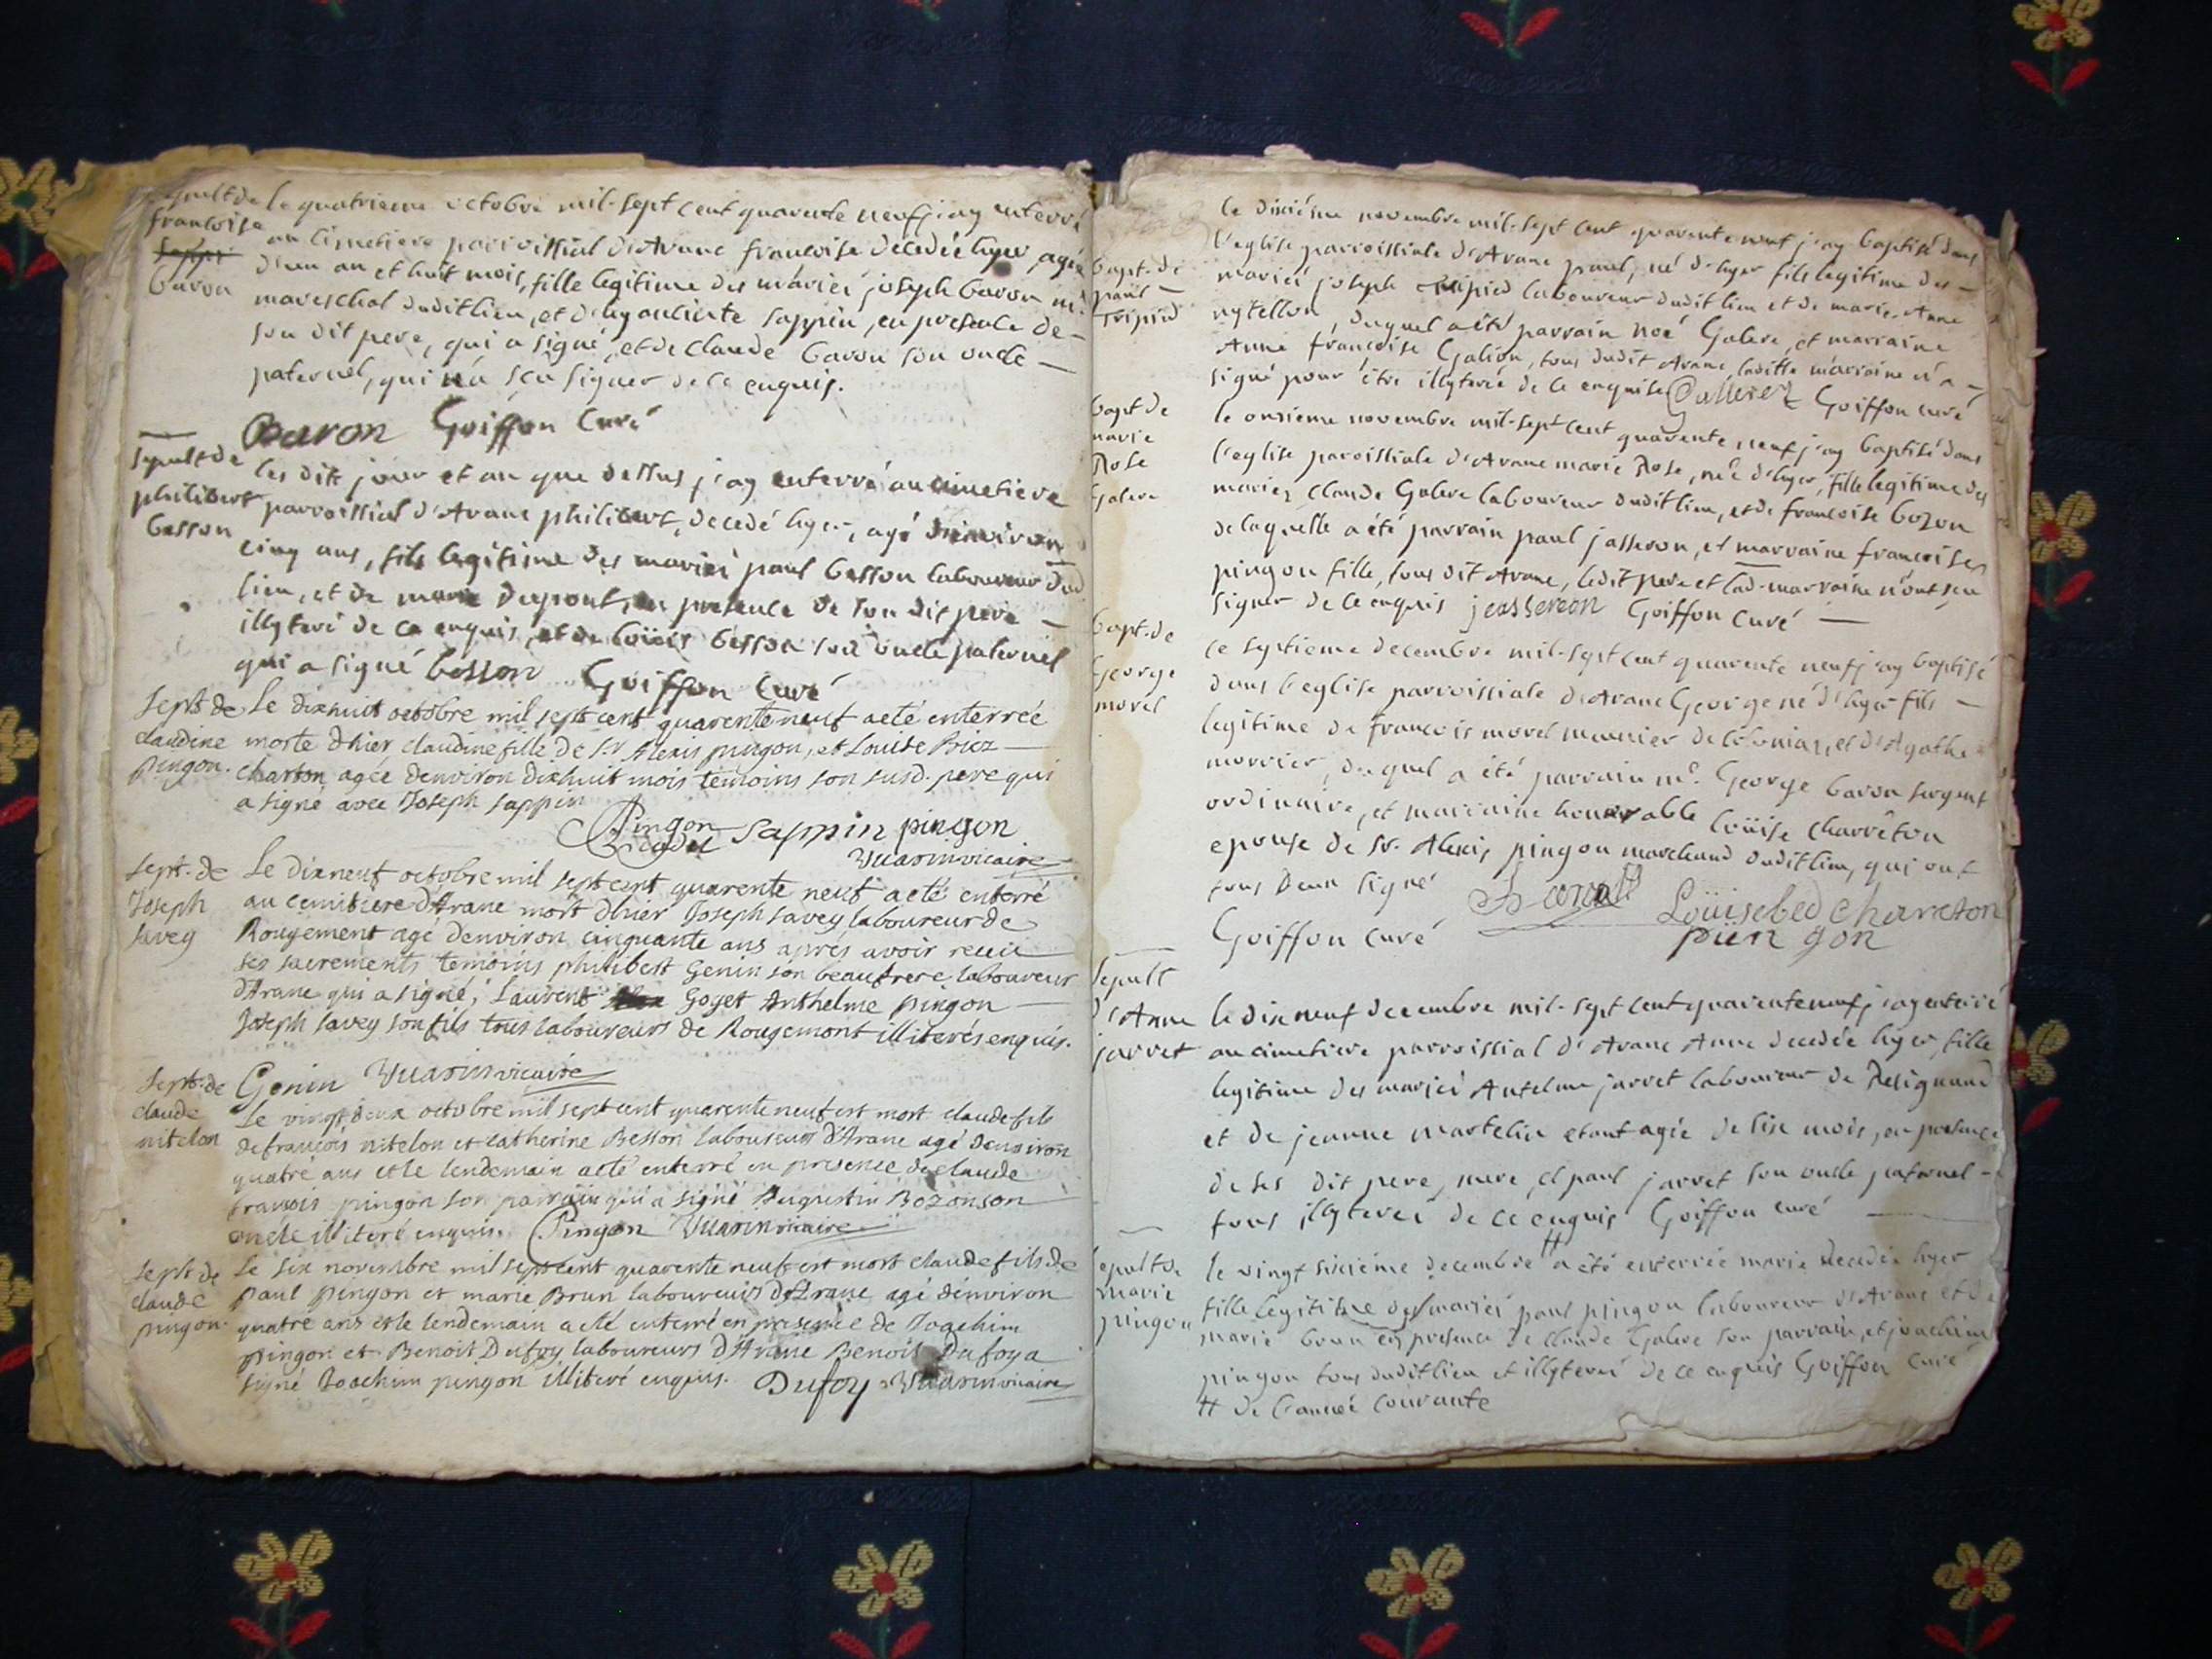 sepult de
francoise
sappi
baron
le quatrieme octobre mil-sept cent quarente neuf j'ay enterré
au cimetiere parroissial d'Aranc francoise decedée hyer, agée
d'un an et huit mois, fille legitime des mariés joseph baron me
mareschal dudit lieu, et d' hyacinte sappin, en presence de
son dit pere, qui a signé, et de Claude baron son oncle
paternel, qui n'a sçu signer de ce enquis.
Baron Goiffon Curé
sepult de
philibert
besson
les dits jour et an que dessus j'ay enterré au cimetiere
parroissial d'Aranc philibert, decedé hyer, agé d'environ
cinq ans, fils legitime des mariés paul besson laboureur dud
lieu, et de marie dupont, en presence de son dit pere
illyteré de ce enquis, et de loüis besson son oncle paternel
qui a signé besson Goiffon Curé
Sept. de
claudine
pingon.
Le dixhuit octobre mil sept cent quarente neuf a eté enterrée
morte d'hier claudine fille de Sr Alexis pingon, et Louise Briez
charton agée denviron dixhuit mois temoins son susd. pere qui
a signé avec Joseph sappin
Pingon sappin pingon
Vuarin vicaire
Sept. de
Joseph
Savey
Le dix neuf octobre mil sept cent quarente neuf a eté enterré
au cemitiere d'Aranc mort d'hier Joseph Savey laboureur de
Rougemont agé denviron cinquante ans après avoir receu
ses sacrements temoins philibert Genin son beaufrere laboureur
d'Aranc qui a signé, Laurent Goyet Anthelme pingon
Joseph Savey son fils tous laboureurs de Rougemont illiterés enquis.
Genin Vuarin vicaire
Sept. de
claude
nitelon
Le vingt deux octobre mil sept cent quarente neuf est mort claude fils
de françois nitelon et catherine Besson laboureurs d'Aranc agé denviron
quatre ans et le lendemain a eté enterré en presence de claude
francois pingon son parrain qui a signé Augustin Bozonson
oncle illiteré enquis. Pingon Vuarin vicaire
Sept. de
claude
pingon.
Le six novembre mil sept cent quarente neuf est mort claude fils de
paul pingon et marie Brun laboureurs d'Aranc agé denviron
quatre ans et le lendemain a eté enterré en presence de Joachim
pingon et Benoit Dufoy laboureurs d'Aranc Benoit Dufoy a
signé Joachim pingon illiteré enquis. Dufoy Vuarin vicaire
bapt. de
paul
Tripied
le dixiéme novembre mil-sept cent quarente neuf j'ay baptisé dans
l'eglise parroissiale d'Aranc paul, né d'hyer fils legitime des
mariés joseph tripied laboureur dudit lieu et de marie-Anne
nytellon, duquel a été parrain noé Galere, et marraine
Anne françoise Galion, tous dudit Aranc, laditte marraine n'a
signé pour être illyterée de ce enquise Gallerez Goiffon curé
bapt de
marie
Rose
Galere
le onzieme novembre mil-sept cent quarente neuf j'ay baptisé dans
l'eglise paroissiale d'Aranc marie Rose, née d'hyer, fille legitime des
mariez claude Galere laboureur dudit lieu, et de francoise bozon
de laquelle a été parrain paul jasseron, et marraine francoise
pingon fille, tous dit Aranc, ledit pere et lad. marraine n'ont sçu
signer de ce enquis jeasseron Goiffon Curé
bapt. de
George
morel
ce septieme decembre mil-sept cent quarente neuf j'ay baptisé
dans l'eglise parroissiale d'Aranc George né d'hyer fils
legitime de francois morel meunier de et d'Agathe
morrier, duquel a été parrain me. George baron sergent
ordinaire, et marraine honorable loüise charreton
epouse de Sr. Alexis pingon marchand dudit lieu, qui ont
tous deux signé
Goiffon curé
Loüise charreton
püngon
sepult
d'Anne
jarret
le dix neuf decembre mil-sept cent quarente neuf j'ay enterré
au cimetiere parroissial d'Aranc Anne decedée hyer, fille
legitime des mariés Antelme jarret laboureur de Resignand
et de jeanne martelin etant agée de six mois, en presence
de ses dit pere, mere, et paul jarret son oncle paternel
tous illyterés de ce enquis Goiffon curé
sepult de
marie
pingon
le vingt sixiéme decembre # a été enterrée marie decedée hyer
fille legitime des mariés paul pingon laboureur d'Aranc et de
marie brun en presence de claude Galere son parrain, et joachim
pingon tous dudit lieu et illyterés de ce enquis Goiffon curé
# de l'année courante